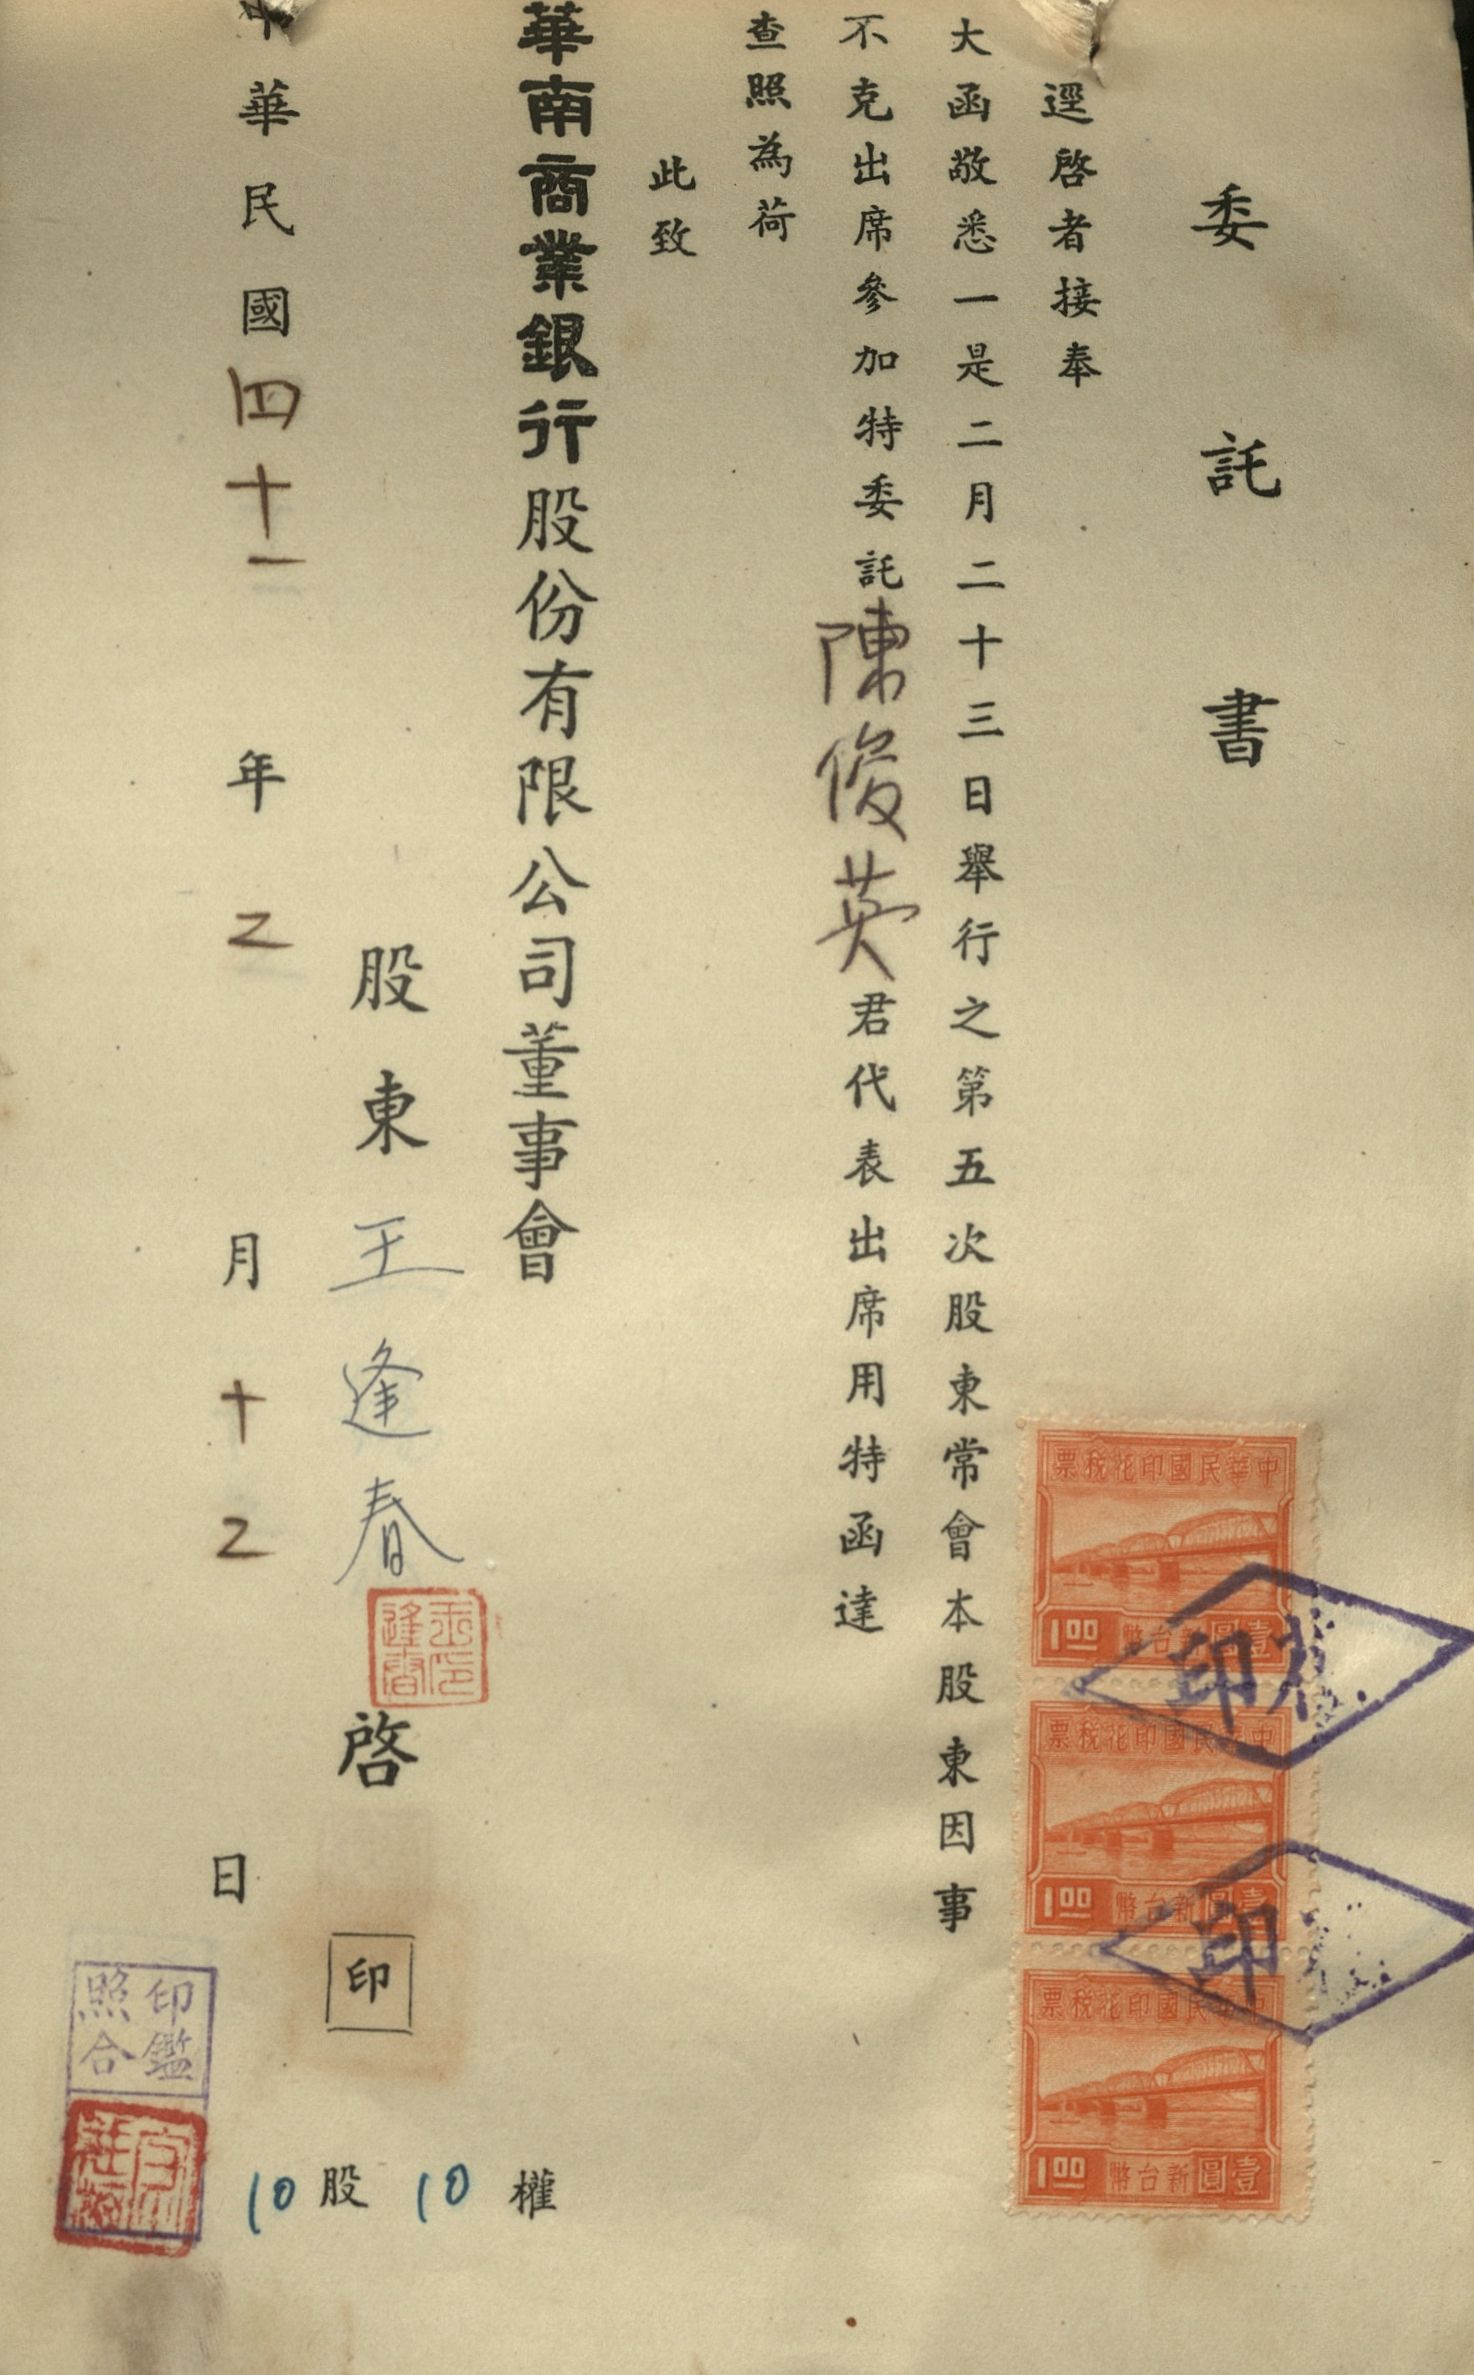 委託書
逕啓者接奉
大函敬悉一是二月二十三日舉行之第五次股東常會本股東因事
不克出席參加特委託陳俊英君代表出席用特函達
查照為荷
此致
華南商業銀行股份有限公司董事會
股東王逢春啓
印
中華民國四十一年乙月十乙日
10股10權
印鑑
照合
中華民國印花稅票
1.00 新台幣壹圓
中華民國印花稅票
1.00 新台幣壹圓
中華民國印花稅票
1.00 新台幣壹圓
印
印
王印
逢春